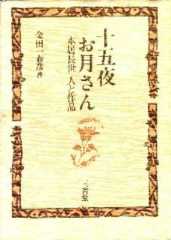 十五夜
お月さん
本居長世 人と作品
金田一春彦 著
三省堂